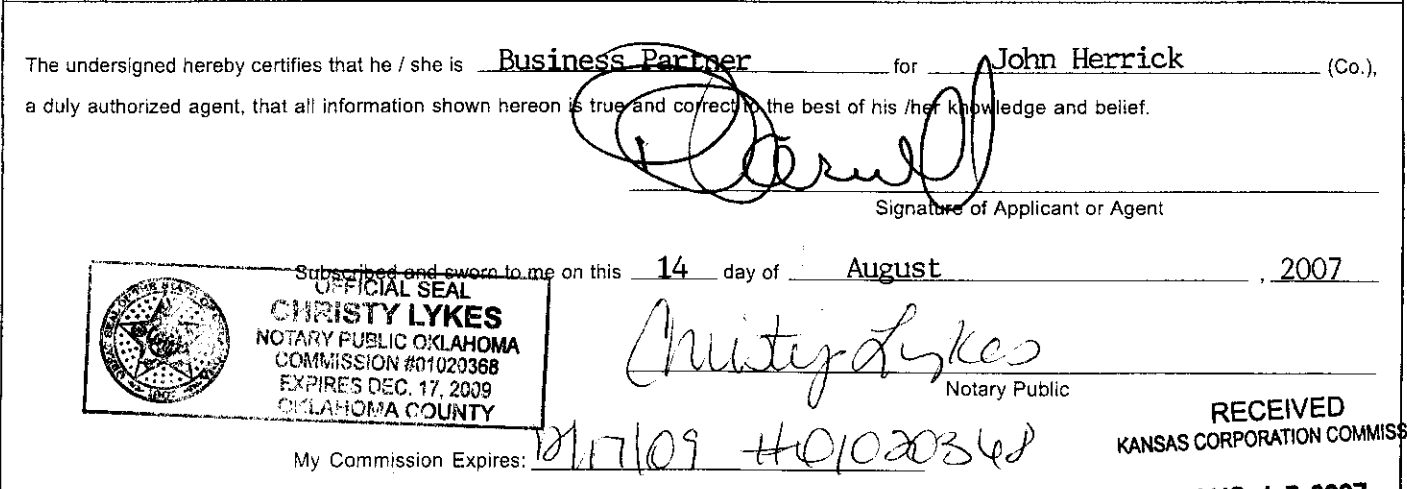 The undersigned hereby certifies that he / she is Business Partner for John Herrick (Co.),
a duly authorized agent, that all information shown hereon is true and correct to the best of his /her knowledge and belief.
Signature of Applicant or Agent
Subscribed and sworn to me on this 14 day of August , 2007
OFFICIAL SEAL
CHRISTY LYKES
NOTARY PUBLIC OKLAHOMA
COMMISSION #01020368
EXPIRES DEC. 17, 2009
OKLAHOMA COUNTY
Christy Lykes
Notary Public
RECEIVED
KANSAS CORPORATION COMMISS
My Commission Expires: 12/17/09 #01020368
2007